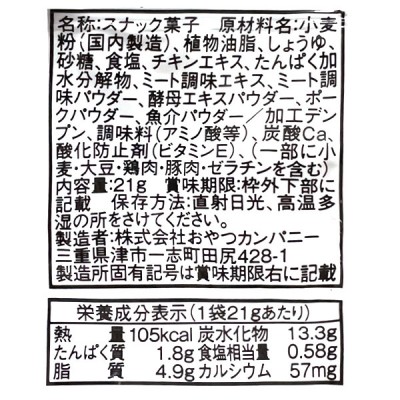 名称:スナック菓子 原材料名:小麦
粉(国内製造)、植物油脂、しょうゆ、
砂糖、食塩、チキンエキス、たんぱく加
水分解物、ミート調味エキス、ミート調
味パウダー、酵母エキスパウダー、ポー
クパウダー、魚介パウダー/加工デン
プン、調味料(アミノ酸等)、炭酸Ca、
酸化防止剤(ビタミンE)、(一部に小
麦・大豆・鶏肉・豚肉・ゼラチンを含む)
内容量:21g 賞味期限:枠外下部に
記載 保存方法:直射日光、高温多
湿の所をさけてください。
製造者:株式会社おやつカンパニー
三重県津市一志町田尻428-1
製造所固有記号は賞味期限右に記載
栄養成分表示(1袋21gあたり)
熱量 105kcal 炭水化物 13.3g
たんぱく質 1.8g 食塩相当量 0.58g
脂質 4.9g カルシウム 57mg